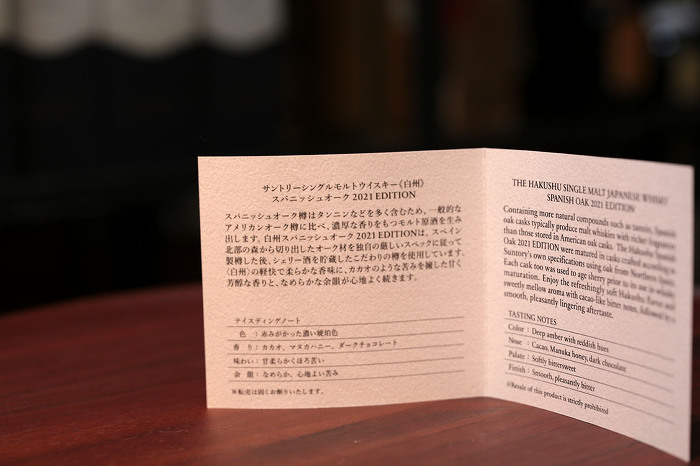 サントリーシングルモルトウイスキー《白州》
スパニッシュオーク 2021 EDITION
スパニッシュオーク樽はタンニンなどを多く含むため、一般的な
アメリカンオーク樽に比べ、濃厚な香りをもつモルト原酒を生み
出します。白州スパニッシュオーク 2021 EDITIONは、スペイン
北部の森から切り出したオーク材を独自の厳しいスペックに従って
製樽した後、シェリー酒を貯蔵したこだわりの樽を使用しています。
《白州》の軽快で柔らかな香味に、カカオのような苦みを擁した甘く
芳醇な香りと、なめらかな余韻が心地よく続きます。
テイスティングノート
色 : 赤みがかった濃い琥珀色
香り : カカオ、マヌカハニー、ダークチョコレート
味わい : 甘柔らかくほろ苦い
余韻 : なめらか、心地よい苦み
※転売は固くお断りいたします。
THE HAKUSHU SINGLE MALT JAPANESE WHISKY
SPANISH OAK 2021 EDITION
Containing more natural compounds such as tannin, Spanish
oak casks typically produce malt whiskies with richer fragrance
than those stored in American oak casks. The Hakushu Spanish
Oak 2021 EDITION were matured in casks crafted according to
Suntory's own specifications using oak from Northern Spain.
Each cask too was used to age sherry prior to its use in whisky
maturation. Enjoy the refreshingly soft Hakushu flavor and
sweetly mellow aroma with cacao-like bitter notes, followed by a
smooth, pleasantly lingering aftertaste.
TASTING NOTES
Color : Deep amber with reddish hues
Nose : Cacao, Manuka honey, dark chocolate
Palate : Softly bittersweet
Finish : Smooth, pleasantly bitter
※Resale of this product is strictly prohibited